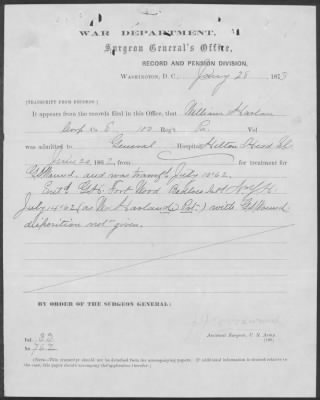 WAR DEPARTMENT,
Surgeon General's Office,
RECORD AND PENSION DIVISION,
WASHINGTON, D. C., Jany 28 1873
[TRANSCRIPT FROM RECORDS.]
It appears from the records filed in this Office, that William Harlan
Corp Co. E. 100 Reg't Pa. Vol
was admitted to General Hospital Hilton Head
June 20, 1862, from for treatment for
Gs Wound, and was transfd. July 10 62.
Entd G. H. Fort Wood Bedloes Isld N.Y.H.
July 14 62 (as W. Harland Pvt.) with Gs Wound.
disposition not given.
BY ORDER OF THE SURGEON GENERAL:
Assistant Surgeon, U. S. Army
Vol. 33
No. 762
(NOTE.—This transcript should not be detached from the accompanying papers. If additional information is desired relative to
the case, this paper should accompany the application therefor.)